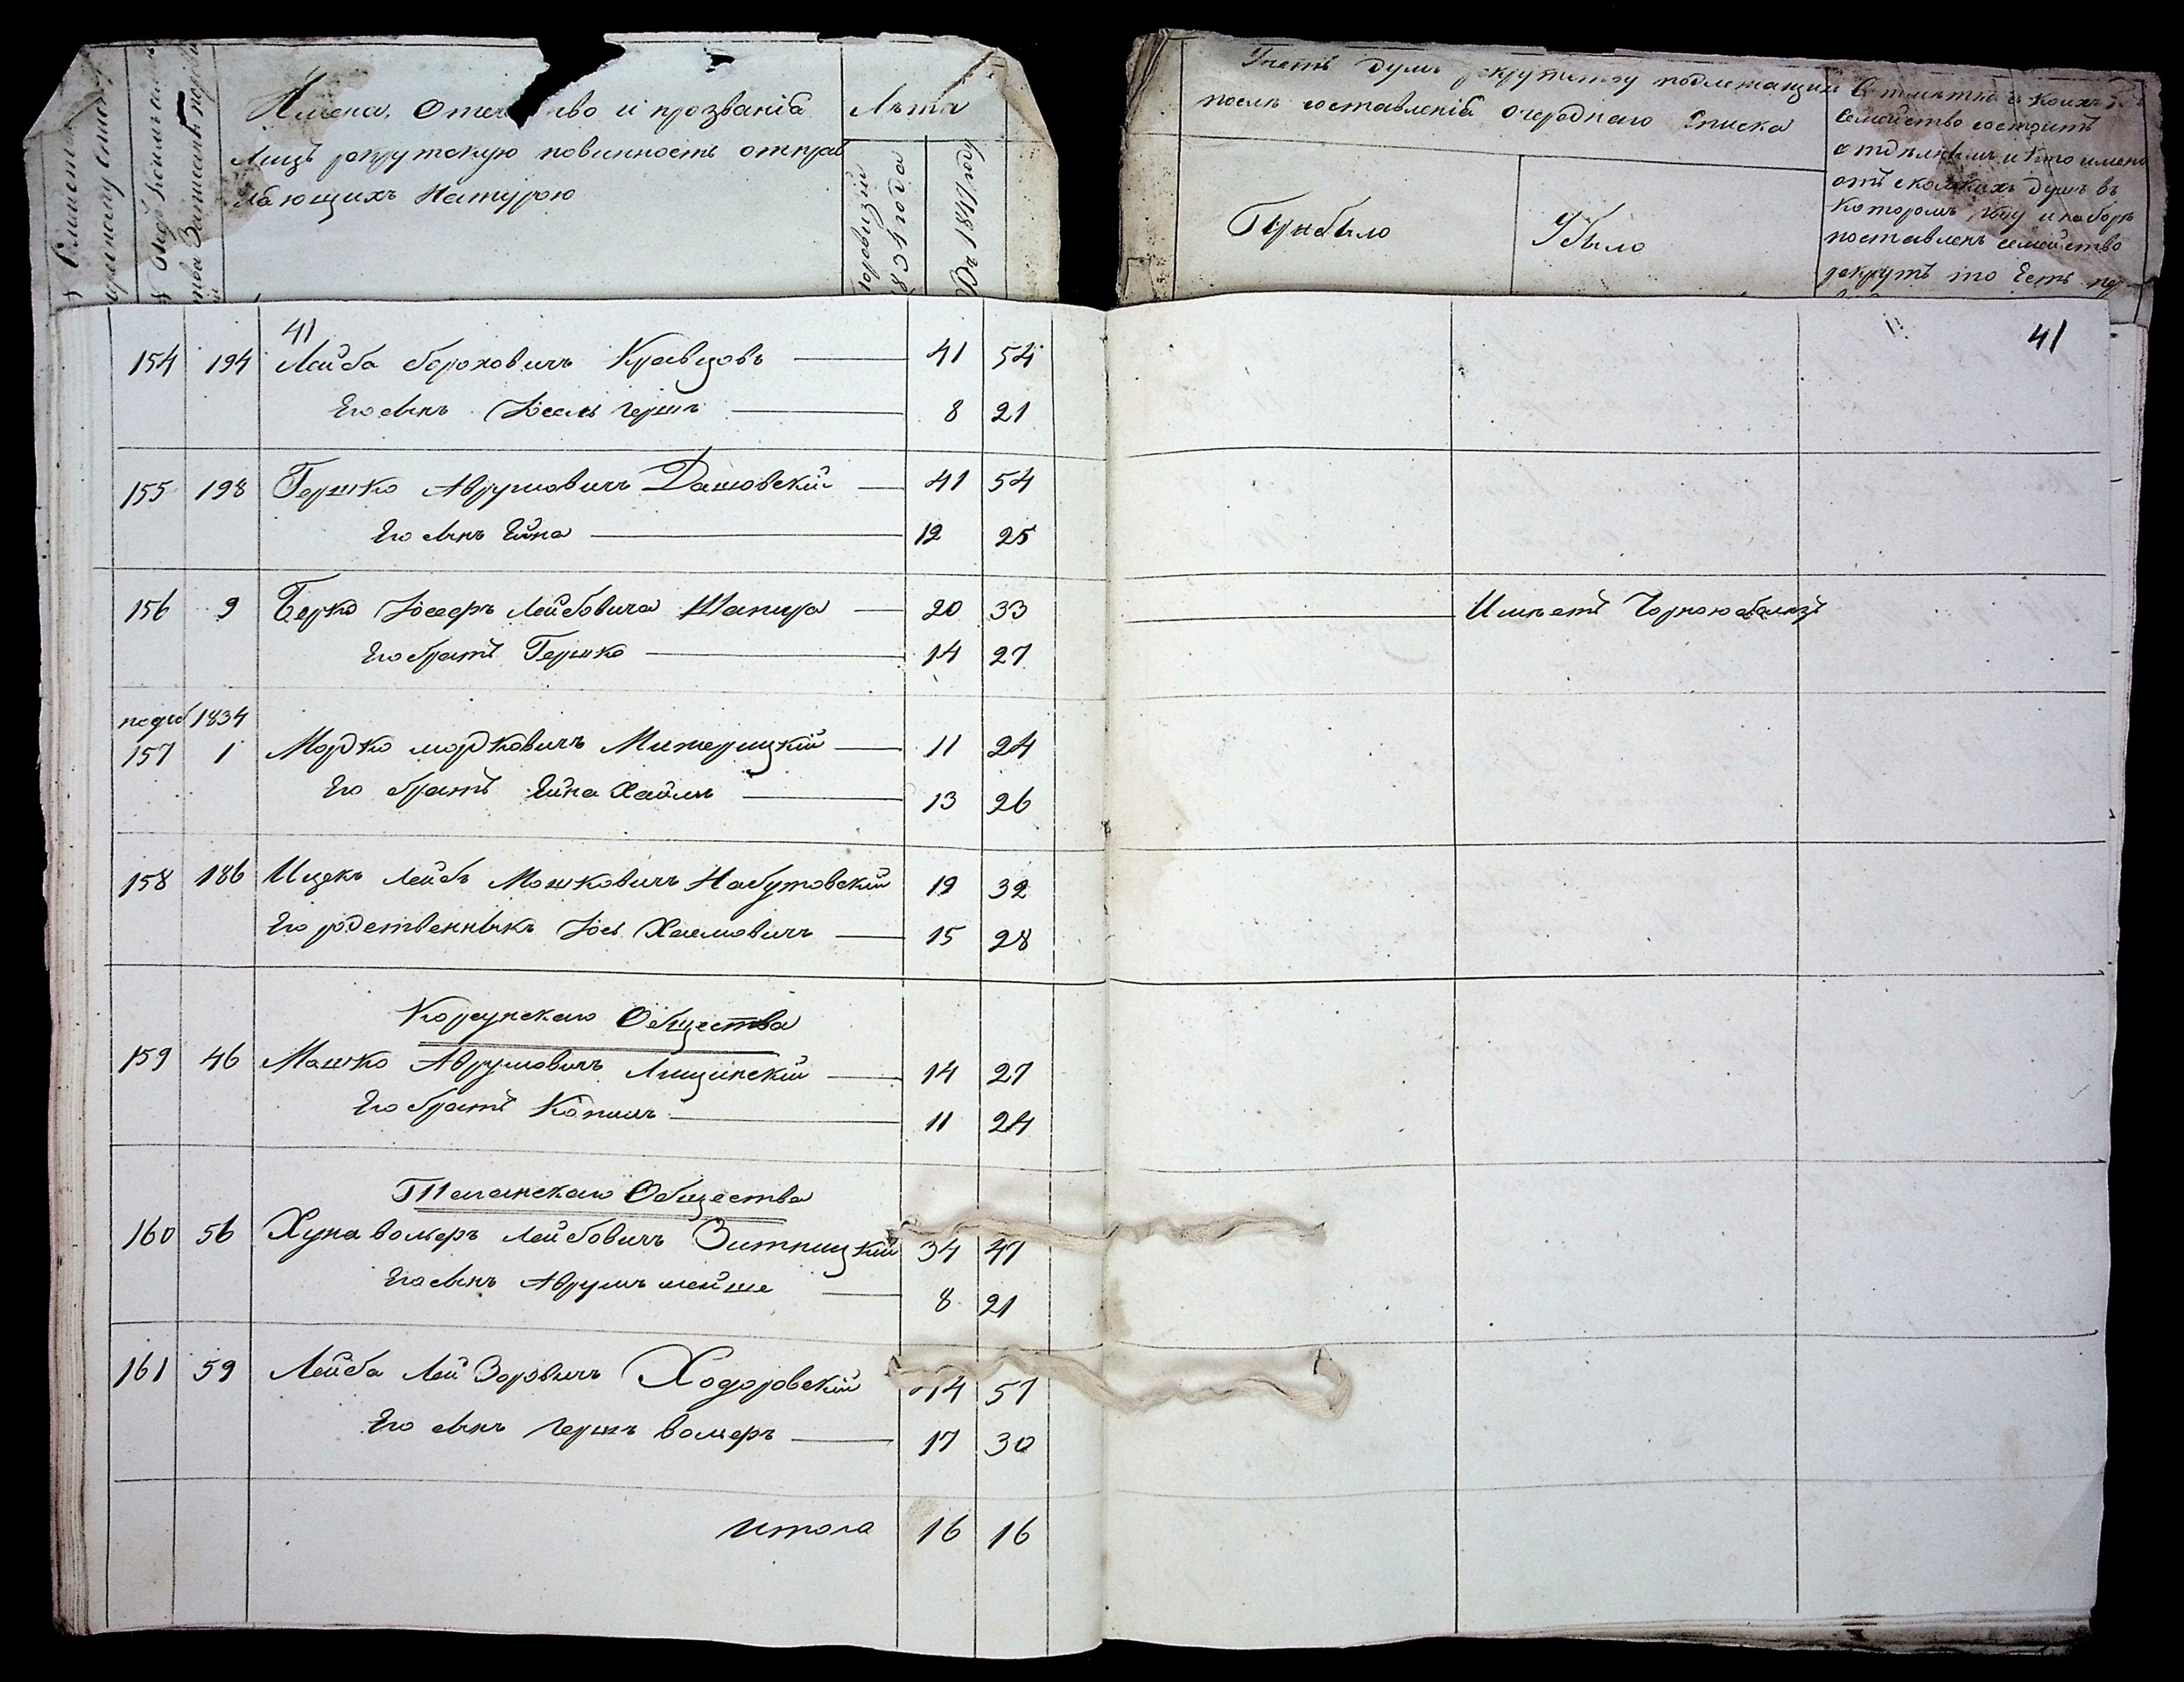 Имена, Отече во и прозванія
Лицъ рекрутскую повинность отправ
ляющихъ Натурою
Лѣта
По ревизіи
1834 года
Учетъ душъ рекрутству подлежащихъ
послѣ составленія очереднаго Списка
Прибыло
Убыло
семейство состоитъ
отъ сколькихъ душъ въ
которомъ году и наборѣ
поставленъ семейство
рекрутъ то Есть
41
41
154 194 Лейба борохович Кравцовъ 41 54
Его сынъ Іосель гершъ 8 21
155 198 Гершко Аврумовичъ Дашовскій 41 54
Его сынъ Ейна 12 25
156 9 Берко Іосефъ Лейбовича Шапира 20 33 Имѣетъ
Его братъ Гершко 14 27
1834
157 1 Мордко мордковичъ Митерицкій 11 24
Его братъ Ейна Хаимъ 13 26
158 186 Ицекъ Лейбъ Мошковичъ Набутовскій 19 32
Его родственникъ Іось Хаимовичъ 15 28
Корсунскаго Общества
159 46 Машко Аврумовичъ Лищинскій 14 27
Его братъ Копилъ 11 24
Общества
160 56 Хуна вольфъ Лейбовичъ Житницкій 34 47
Его сынъ Аврумъ мейше 8 21
161 59 Лейба Лейзоровичъ Ходоровскій 44 57
Его сынъ гершъ вольфъ 17 30
Итого 16 16